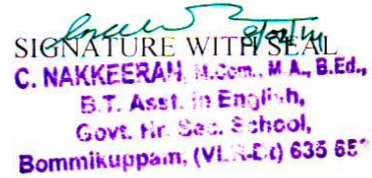 SIGNATURE WITH SEAL
C. NAKKEERAN, M.Com., M.A., B.Ed.,
B.T. Asst. in English,
Govt. Hr. Sec. School,
Bommikuppam, (VLR-Dt) 635 65